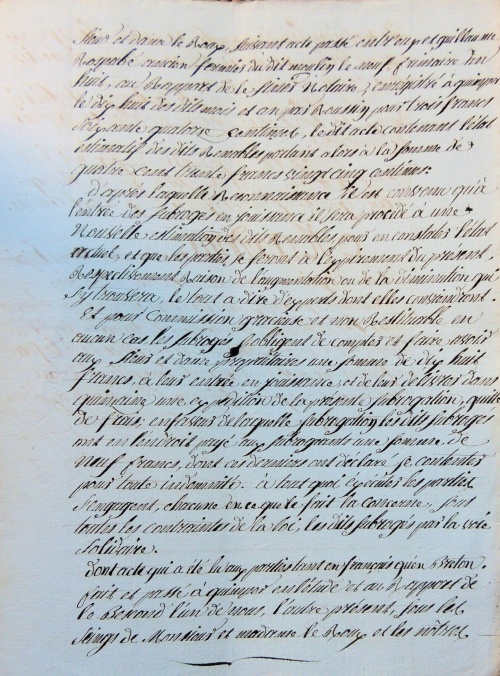 Sieur et dame le Roux, suivant acte passé entr'eux et guillaume
Kgrabé ancien fermier du dit moulin le neuf frimaire an
huit, au Rapport de le Sieur Notaire, enregistré à quimper
le dix huit des dits mois et an par Roussin pour trois francs
soixante quatorze centimes, le dit acte contenant l'état
estimatif des dits Renables portant alors à la somme de
quatre cent trente francs vingt cinq centimes.
D'après laquelle Reconnaissance il est convenu qu'à
l'entrée des subrogés en jouissance il sera procédé à une
Nouvelle estimation des dits Renables, pour en constater l'état
actuel, et que les parties se feront à l'expirement du présent,
Respectivement Raison de l'augmentation ou de la diminution qui
s'y trouvera, le tout à dire d'experts dont elles conviendront
Et pour Commission gracieuse et non Restituable en
aucun cas les subrogés s'obligent de compter et faire avoir
aux Sieur et dame propriétaires une somme de dix huit
francs, à leur entrée en jouissance, et de leur délivrer dans
quinzaine une expédition de la présente subrogation, quitte
de frais; en faveur de laquelle subrogation les dits subrogés
ont en l'endroit payé aux subrogeants une somme de
neuf francs, dont ces derniers ont déclaré se contenter
pour toute indemnité. à tout quoi exécuter les parties
s'engagent, chacune en ce que le fait la concerne, sous
toutes les contraintes de la loi, les dits subrogés par la voie
solidaire.
dont acte qui a été lu aux parties tant en français qu'en Breton.
fait et passé à quimper en l'étude et au Rapport de
le Bescond l'un de nous, l'autre présent, sous les
seings de Monsieur et madame le Roux et les nôtres